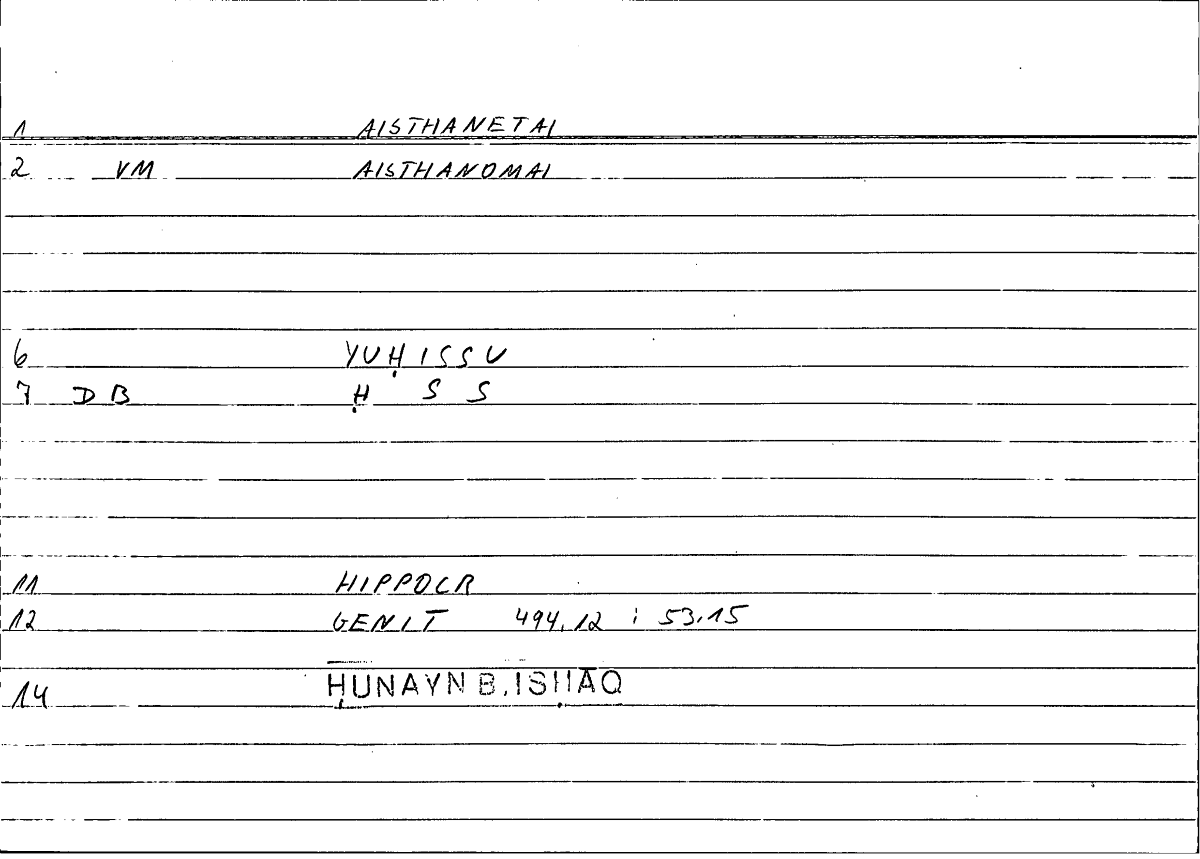 1 AISTHANETAI
2 VM AISTHANOMAI
6 YUḤISSU
7 DB Ḥ S S
11 HIPPOCR
12 GENIT 494,12 ; 53,15
14 ḤUNAYN B. ISḤĀQ